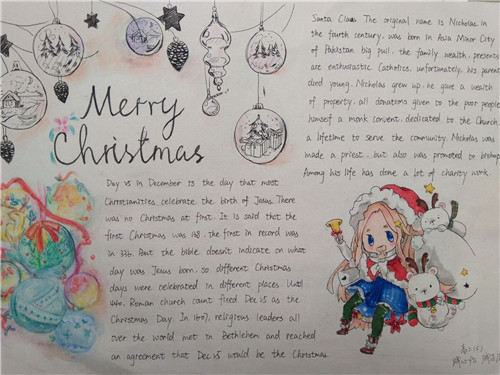 Merry
Christmas
Santa Claus The original name is Nicholae in
the fourth century, was born in Asia Minor City
of Pakistan big pull, the family wealth, presents
are enthustatic Catholics, unfortunately, his parent
died young. Nicholas grew up, he gave a wealth
of property, all donations given to the poor people
himself a monk convent, dedicated to the Church,
a lifetime to serve the community. Nicholas was
made a priest, but also was promoted to bishop
Among his life has done a lot of charity work
Day is in December is the day that most
Christianities celebrate the birth of Jesus. There
was no Christmas at first. It is said that the
first Christmas was 138, the first in record was
in 336. But the bible doesn't indicate on what
day was Jesus born, so different Christmas
days were celebrated in different places. Until
440, Roman church count fixed Dec.25 as the
Christmas Day. In 1607, religious leaders all
over the world met in Bethlehem and reached
an agreement that Dec.25 would be the Christmas.